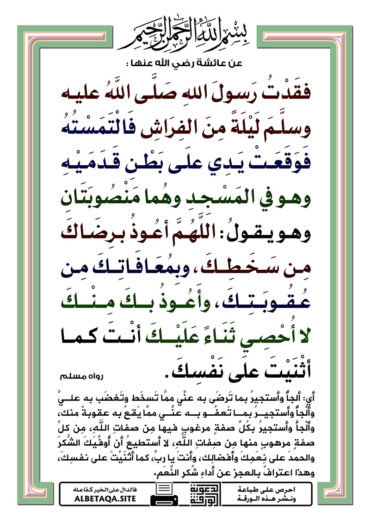 بسم الله الرحمن الرحيم
عن عائشة رضي الله عنها :
فقَدْتُ رَسولَ اللهِ صَلَّى اللَّهُ عليه
وسلَّمَ لَيْلَةً مِنَ الفِرَاشِ فَالْتَمَسْتُهُ
فَوَقَعَتْ يَدِي علَى بَطْنِ قَدَمَيْهِ
وهو في المَسْجِدِ وهُما مَنْصُوبَتَانِ
وهو يقولُ: اللَّهُمَّ أعُوذُ برِضَاكَ
مِن سَخَطِكَ، وبِمُعَافَاتِكَ مِن
عُقُوبَتِكَ، وأَعُوذُ بكَ مِنْكَ
لا أُحْصِي ثَنَاءً عَلَيْكَ أنْتَ كما
أثْنَيْتَ علَى نَفْسِكَ. رواه مسلم
أي: ألجأُ وأستجيرُ بما تَرضَى به عنِّي ممَّا تَسخَط وتَغضَب به عليَّ
وألْجأُ وأستجيرُ بما تَعفُو به عنِّي ممَّا يقَع به عقوبةٌ منك،
وألْجأ وأستجيرُ بكلِّ صفةٍ مرغوبٍ فيها مِن صفاتِ اللَّهِ، مِن كلِّ
صفةٍ مرهوبٍ منها مِن صِفاتِ اللَّهِ، لا أستطيعُ أن أُوفِّيَكَ الشُّكرَ
والحمدَ على نِعمِكَ وأفضالِك، وأنت يا ربِّ، كما أَثْنَيْتَ على نفسِكَ،
وهذا اعترافٌ بالعجزِ عن أداءِ شُكرِ النِّعَمِ.
احرص على طباعة
ونشر هذه الورقة
لدعوية
الورقة
فالدال على الخير كفاعله
ALBETAQA.SITE